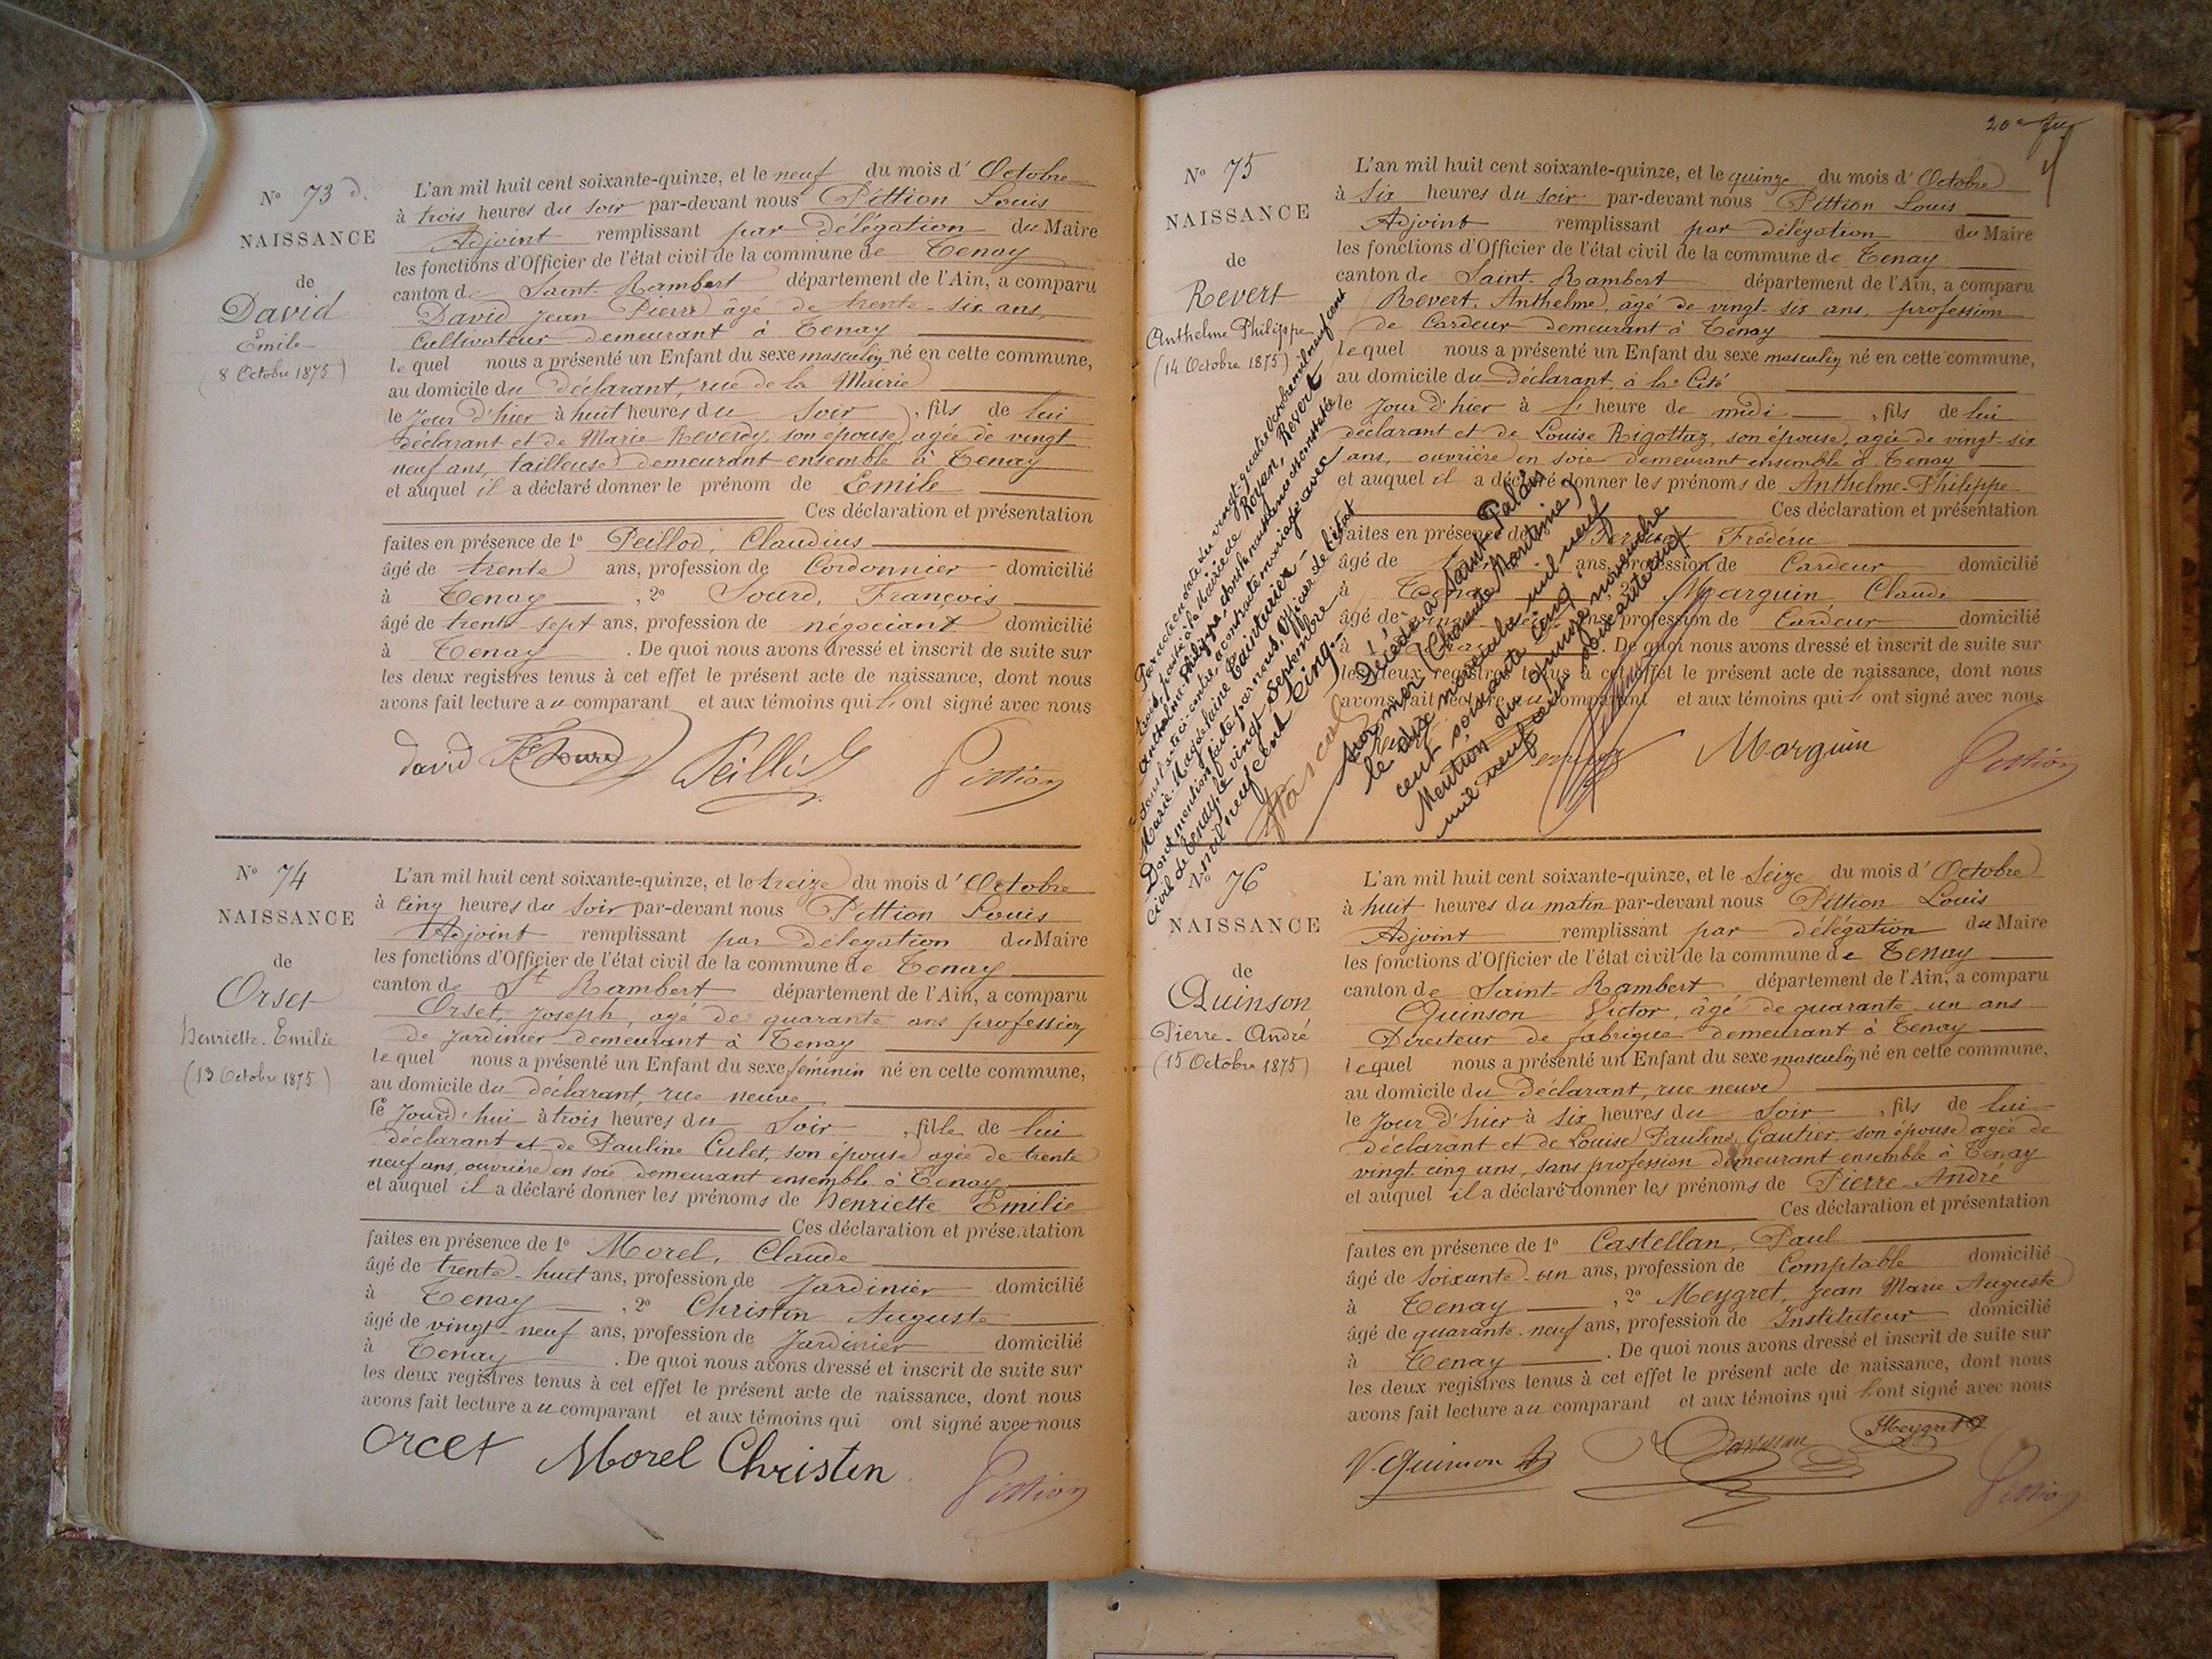 N° 73 d.
NAISSANCE
de
David
Emile
(8 Octobre 1875)
L'an mil huit cent soixante-quinze, et le neuf du mois d'Octobre
à trois heures du soir par-devant nous Pittion Louis
Adjoint remplissant par délégation du Maire
les fonctions d'Officier de l'état civil de la commune de Tenay
canton de Saint-Rambert département de l'Ain, a comparu
David Jean Pierre âgé de trente-six ans,
cultivateur demeurant à Tenay
lequel nous a présenté un Enfant du sexe masculin né en cette commune,
au domicile du déclarant, rue de la Mairie
le jour d'hier à huit heures du soir, fils de lui
déclarant et de Marie Reverdy, son épouse, agée de vingt
neuf ans, tailleuse demeurant ensemble à Tenay
et auquel il a déclaré donner le prénom de Emile
Ces déclaration et présentation
faites en présence de 1° Peillod, Claudius
âgé de trente ans, profession de Cordonnier domicilié
à Tenay, 2° Sourd, François
âgé de trente-sept ans, profession de négociant domicilié
à Tenay. De quoi nous avons dressé et inscrit de suite sur
les deux registres tenus à cet effet le présent acte de naissance, dont nous
avons fait lecture au comparant et aux témoins qui ont signé avec nous
David Sourd Peillod Pittion
N° 74
NAISSANCE
de
Orset
Henriette Emilie
(13 Octobre 1875)
L'an mil huit cent soixante-quinze, et le treize du mois d'Octobre
à cinq heures du soir par-devant nous Pittion Louis
Adjoint remplissant par délégation du Maire
les fonctions d'Officier de l'état civil de la commune de Tenay
canton de St Rambert département de l'Ain, a comparu
Orset, Joseph, agé de quarante ans profession
de Jardinier demeurant à Tenay
lequel nous a présenté un Enfant du sexe féminin né en cette commune,
au domicile du déclarant, rue neuve
le jourd'hui à trois heures du soir, fille de lui
déclarant et de Pauline Culet, son épouse agée de trente
neuf ans, ouvrière en soie demeurant ensemble à Tenay
et auquel il a déclaré donner les prénoms de Henriette Emilie
Ces déclaration et présentation
faites en présence de 1° Morel, Claude
âgé de trente-huit ans, profession de Jardinier domicilié
à Tenay, 2° Christin Auguste
âgé de vingt-neuf ans, profession de Jardinier domicilié
à Tenay. De quoi nous avons dressé et inscrit de suite sur
les deux registres tenus à cet effet le présent acte de naissance, dont nous
avons fait lecture au comparant et aux témoins qui ont signé avec nous
Orcet Morel Christin Pittion
N° 75
NAISSANCE
de
Revert
Anthelme Philippe
(14 Octobre 1875)
L'an mil huit cent soixante-quinze, et le quinze du mois d'Octobre
à six heures du soir par-devant nous Pittion Louis
Adjoint remplissant par délégation du Maire
les fonctions d'Officier de l'état civil de la commune de Tenay
canton de Saint-Rambert département de l'Ain, a comparu
Revert, Anthelme, âgé de vingt-six ans, profession
de Cardeur demeurant à Tenay
lequel nous a présenté un Enfant du sexe masculin né en cette commune,
au domicile du Déclarant, à la Cité
le jour d'hier à l'heure de midi, fils de lui
déclarant et de Louise Rigottaz, son épouse, agée de vingt-six
ans, ouvrière en soie demeurant ensemble à Tenay
et auquel il a déclaré donner les prénoms de Anthelme-Philippe
Ces déclaration et présentation
faites en présence de Frédéric
âgé de ans, profession de Cardeur domicilié
à Tenay, 2° Marguin Claude
âgé de ans, profession de Cardeur domicilié
à. De quoi nous avons dressé et inscrit de suite sur
les deux registres tenus à cet effet le présent acte de naissance, dont nous
avons fait lecture au comparant et aux témoins qui ont signé avec nous
Marguin Pittion
Par acte en date du vingt-quatre Octobre mil neuf cent
trois, passé à la Mairie de Royan, Revert
Anthelme Philippe, dont la naissance est constatée
dans l'acte ci-contre, a contracté mariage avec
Marie-Magdelaine Tainturier.
Dont mention faite par nous, Officier de l'état
civil de Tenay, le vingt Septembre
mil neuf cent cinq.
Décédé à Saint Palais
sur mer (Charente Maritime)
le douze novembre mil neuf
cent soixante cinq.
Mention du quinze novembre
mil neuf cent soixante cinq
N° 76
NAISSANCE
de
Quinson
Pierre-André
(15 Octobre 1875)
L'an mil huit cent soixante-quinze, et le Seize du mois d'Octobre
à huit heures du matin par-devant nous Pittion Louis
Adjoint remplissant par délégation du Maire
les fonctions d'Officier de l'état civil de la commune de Tenay
canton de Saint-Rambert département de l'Ain, a comparu
Quinson Victor, âgé de quarante un ans
Directeur de fabrique demeurant à Tenay
lequel nous a présenté un Enfant du sexe masculin né en cette commune,
au domicile du Déclarant, rue neuve
le jour d'hier à six heures du soir, fils de lui
déclarant et de Louise Pauline Gautier, son épouse agée de
vingt-cinq ans, sans profession demeurant ensemble à Tenay
et auquel il a déclaré donner les prénoms de Pierre-André
Ces déclaration et présentation
faites en présence de 1° Castellan, Paul
âgé de soixante-un ans, profession de Comptable domicilié
à Tenay, 2° Meygret, Jean Marie Auguste
âgé de quarante-neuf ans, profession de Instituteur domicilié
à Tenay. De quoi nous avons dressé et inscrit de suite sur
les deux registres tenus à cet effet le présent acte de naissance, dont nous
avons fait lecture au comparant et aux témoins qui ont signé avec nous
V. Quinson Meygret Pittion